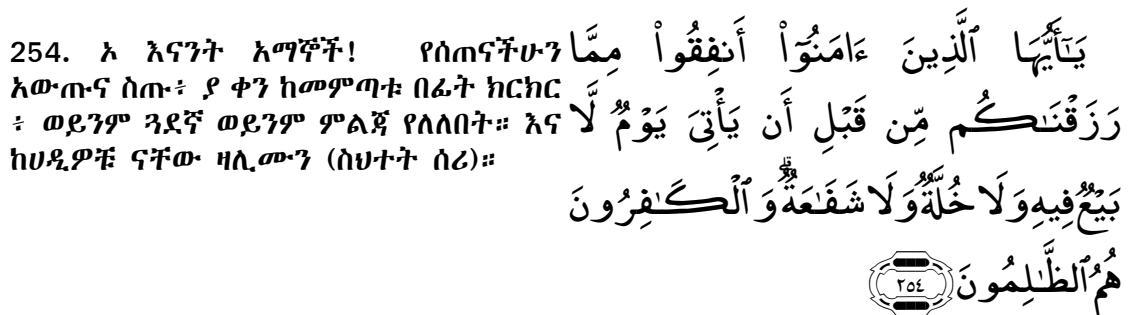 254. ኦ እናንት አማኞች! የሰጠናችሁን
አውጡና ስጡ፥ ያ ቀን ከመምጣቱ በፊት ክርክር
፥ ወይንም ጓደኛ ወይንም ምልጃ የለለበት። እና
ከሀዲዎቹ ናቸው ዛሊሙን (ስህተት ሰሪ)።
يَـٰٓأَيُّهَا ٱلَّذِينَ ءَامَنُوٓا۟ أَنفِقُوا۟ مِمَّا
رَزَقْنَـٰكُم مِّن قَبْلِ أَن يَأْتِىَ يَوْمٌ لَّا
بَيْعٌ فِيهِ وَلَا خُلَّةٌ وَلَا شَفَـٰعَةٌ ۗ وَٱلْكَـٰفِرُونَ
هُمُ ٱلظَّـٰلِمُونَ ٢٥٤